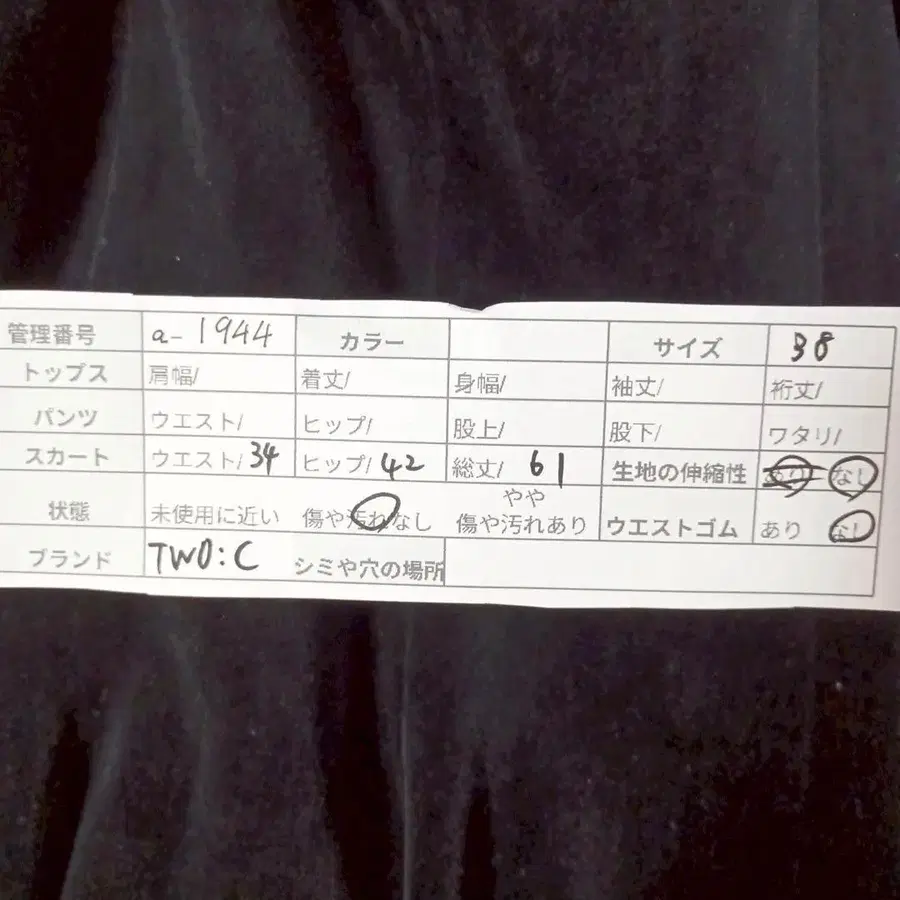 管理番号 a-1944 カラー サイズ 38
トップス 肩幅/ 着丈/ 身幅/ 袖丈/ 裄丈/
パンツ ウエスト/ ヒップ/ 股上/ 股下/ ワタリ/
スカート ウエスト/34 ヒップ/42 総丈/ 61 生地の伸縮性 あり なし
状態 未使用に近い 傷や汚れなし やや傷や汚れあり ウエストゴム あり なし
ブランド TWO:C シミや穴の場所